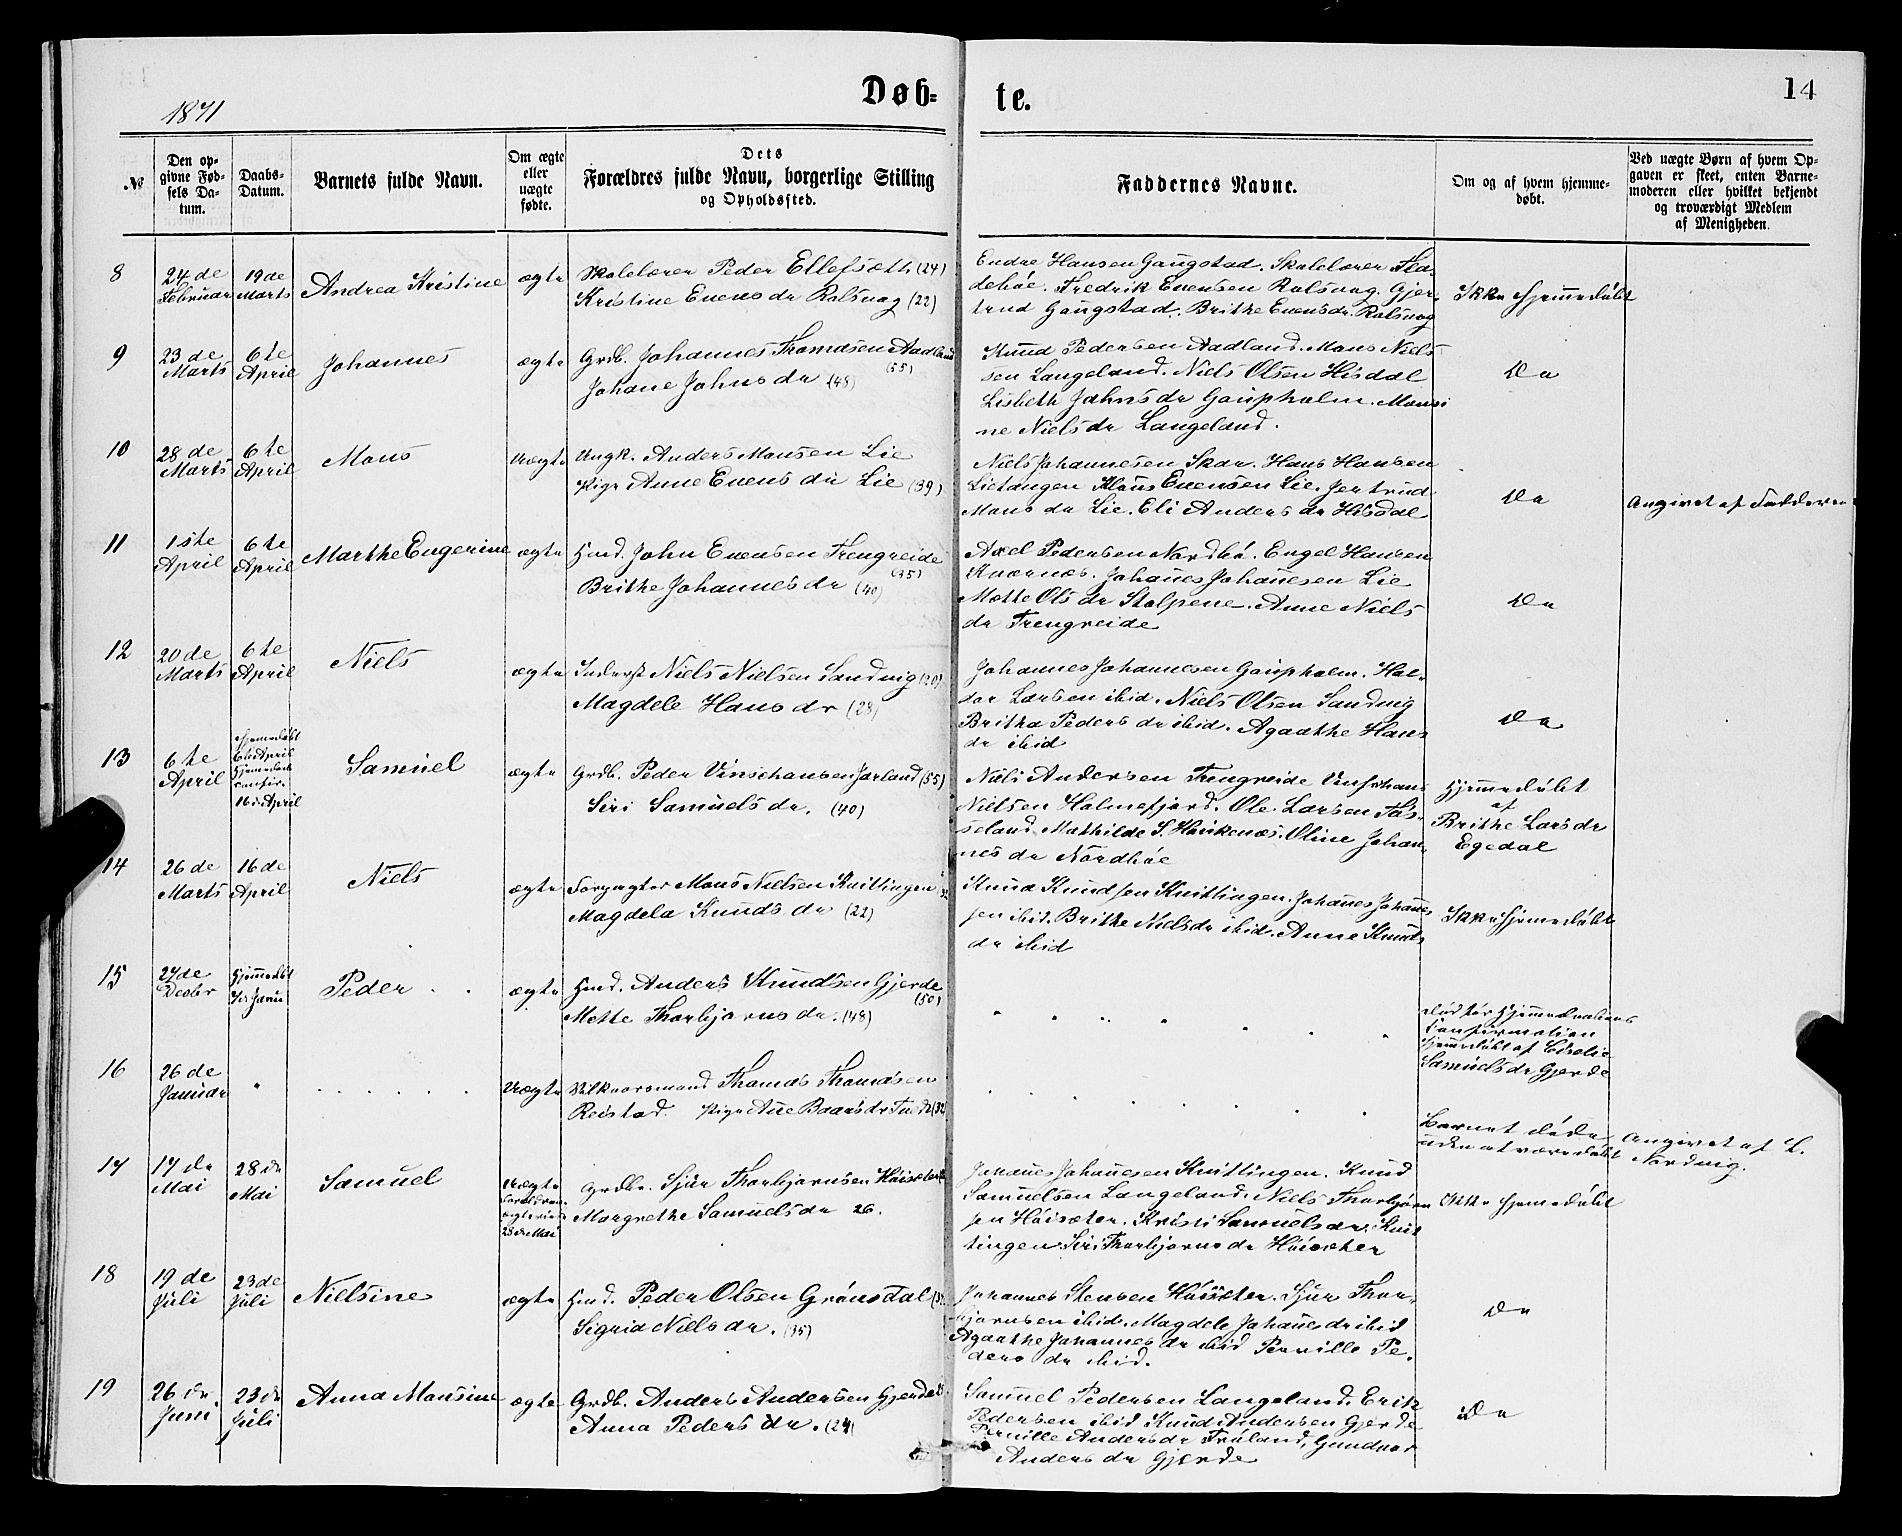 Døb=
te.
14
1871
№
Den op-
givne Fød-
sels Da-
tum.
Daabs-
Datum.
Barnets fulde Navn.
Om ægte
eller
uægte
fødte.
Dets
Forældres fulde Navn, borgerlige Stilling
og Opholdssted.
Faddernes Navne.
Om og af hvem hjemme-
døbt.
Ved uægte Børn af hvem Op-
gaven er skeet, enten Barne-
moderen eller hvilket bekjendt
og troværdigt Medlem
af Menigheden.
8
24de
Februar
19de
Marts
Andrea Kristine
ægte
Skolelærer Peder Ellefsæth (24)
Kristine Evensdr Rolsvog (22)
Endre Hansen Gaugstad. Skolelærer Fla-
dehöe. Fredrik Evensen Rolsvog. Gjer-
trud Gaugstad. Brithe Evensdr. Rolsvog
Ikke hjemmedöbt
9
23de
Marts
6te
April
Johannes
ægte
Grdb. Johannes Thomasen Aadland
(55)
Johane Johnsdr (48)
Knud Pedersen Aadland. Mons Niels-
sen Langeland. Niels Olsen Hisdal
Lisbeth Johnsdr Gaupholm. Monsi
ne Nielsdr Langeland.
Do
10
28de
Marts
6te
April
Mons
Uægte
Ungk. Anders Monsen Lie
Pige Anne Evensdr Lie (39)
Niels Johannesen Skar. Hans Hansen
Lietangen Klaus Evensen Lie. Jertrud
Monsdr Lie. Eli Andersdr Hisdal
Do
Angivet af Fadderne
11
1ste
April
6te
April
Marthe Eugerine
ægte
Hmd. John Evensen Trengreide
(35)
Brithe Johannesdr (40)
Axel Pedersen Nordbö. Engel Hansen
Kvernæs. Johanes Johanesen Lie
Mette Olsdr Stolpene. Anne Niels
dr Trengreide
Do
12
20de
Marts
6te
April
Niels
ægte
Inderst Niels Nielsen Sandvig (20)
Magdele Hansdr (28)
Johannes Johannesen Gaupholm. Hal-
dor Larsen ibid. Niels Olsen Sandvig
Britha Pedersdr ibid. Agaathe Hans
dr ibid
Do
13
6te
April
Hjemmedöbt
6te April
16de April
Samuel
ægte
Grdb. Peder Vinschansen Jarland (55)
Siri Samuelsdr. (40)
Niels Andersen Trengreide
Nielsen Holmefjord. Ole Larsen Tös-
seland. Mathilde S. Haukenæs. Oline Johan-
nesdr Nordböe
Hjemmedöbt
af
Brithe Larsdr
Egedal
14
26de
Marts
16de
April
Niels
ægte
Forpagter Mons Nielsen Knittingen
Magdela Knudsdr (22)
Knud Knudsen Knittingen. Johanes Johanes
sen ibid. Brithe Nielsdr ibid. Anne Knuds
dr ibid
Ikke hjemmedöbt
15
27de
Decbr
Hjemmedöbt
Peder
ægte
Hmd. Anders Knudsen Gjerde
(50)
Mette Thorbjörnsdr. (48)
Död för Hjemmedaabens
Confirmation
Hjemmedöbt af
Samuelsdr Gjerde
16
26de
Januar
Uægte
Vilkaarsmand Thomas Thomasen
Reistad. Pige Ane Baarsdr
Barnet döde
uden at være döbt
Angivet af L.
Nordvig.
17
17de
Mai
28de
Mai
Samuel
Uægte
Forældrene
ægteviede
28de Mai
Grdbr. Sjur Thorbjörnsen Höisæter
Margrethe Samuelsdr 26.
Johanes Johanesen Knittingen. Knud
Samuelsen Langeland. Niels Thorbjörn
sen Höisæter. Kristi Samuelsdr Knit
tingen Siri Thorbjörnsdr Höisæter
Ikke hjemmedöbt
18
19de
Juli
23de
Juli
Nielsine
ægte
Hmd. Peder Olsen Grönsdal
Sigrid Nielsdr. (35)
Johannes Stensen Höisæter. Sjur Thor-
bjørnsen ibid. Magdele Johanesdr ibid
Agaathe Johannesdr ibid Pernille Pe-
dersdr ibid.
Do
19
26de
Juni
23de
Juli
Anna Monsine
ægte
Grdb. Anders Andersen Gjerde
Anna Pedersdr. (24)
Samuel Pedersen Langeland. Erik
Pedersen ibid Knud Andersen Gjerde
Pernille Andersdr Tröland, Gundvor
Andersdr Gjerde
Do